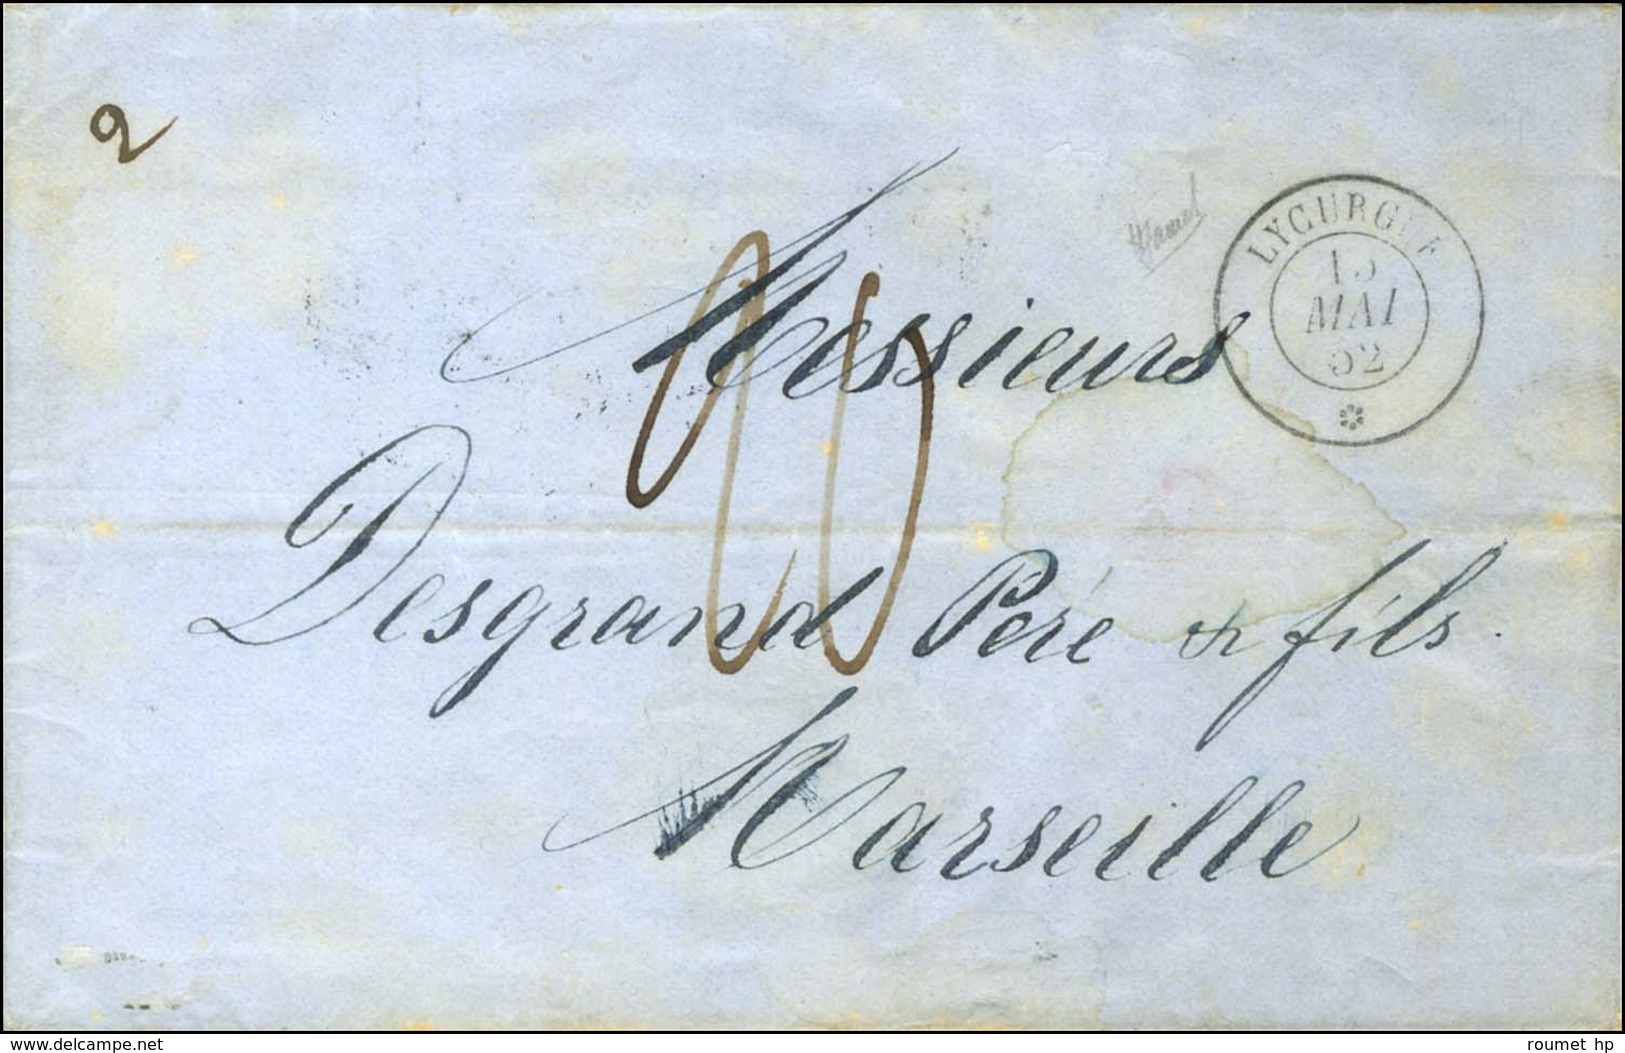 2
LYCURGUE
15
MAI
52
20
Messieurs
Desgrand Pere & fils
Marseille
www.delcampe.net
roumet hp